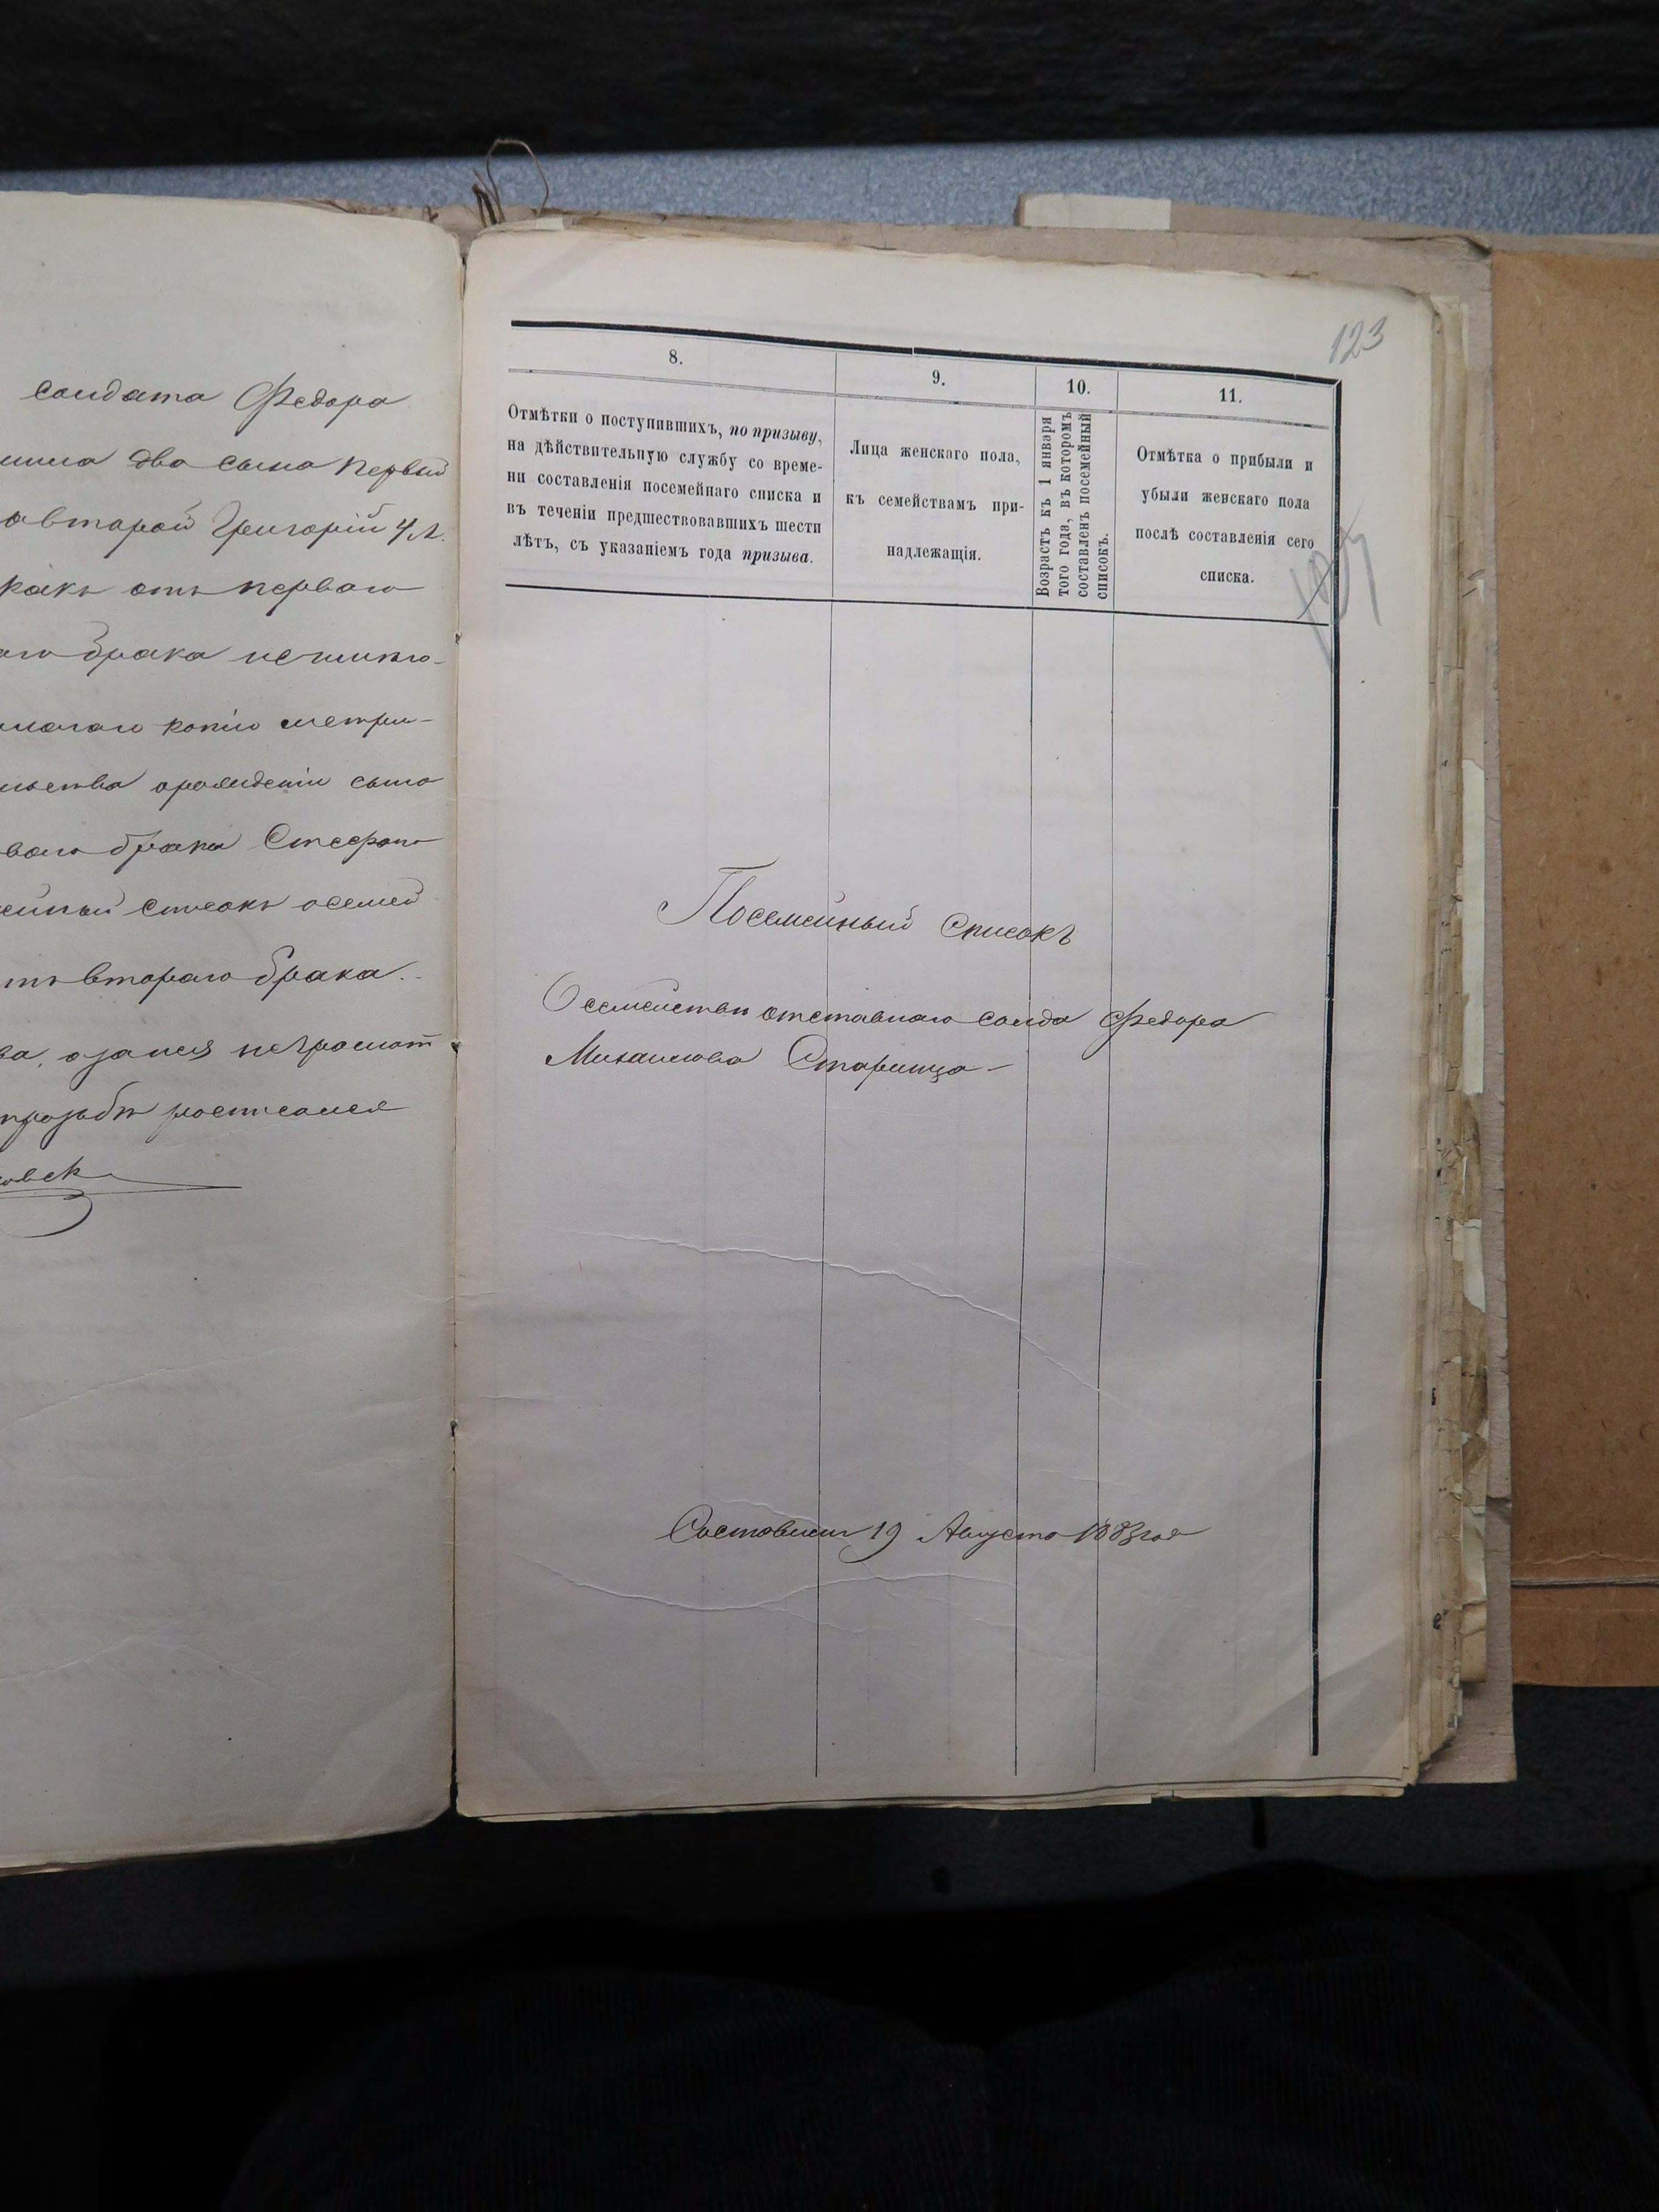 солдата Федора
два сына первый
второй Григорій 4 л.
отъ перваго
брака
копію метри-
о рожденіи сына
брака Стефана
списокъ о семей
второго брака.
неграмот
росписался
123
8.
Отмѣтки о поступившихъ, по призыву,
на дѣйствительную службу со време-
ни составленія посемейнаго списка и
въ теченіи предшествовавшихъ шести
лѣтъ, съ указаніемъ года призыва.
9.
Лица женскаго пола,
къ семействамъ при-
надлежащія.
10.
Возрастъ къ 1 января
того года, въ которомъ
составленъ посемейный
списокъ.
11.
Отмѣтка о прибыли и
убыли женскаго пола
послѣ составленія сего
списка.
Посемейный Списокъ
О семействѣ отставнаго солда Федора
Михаилова Старица
Составленъ 19 Августа 1883 года